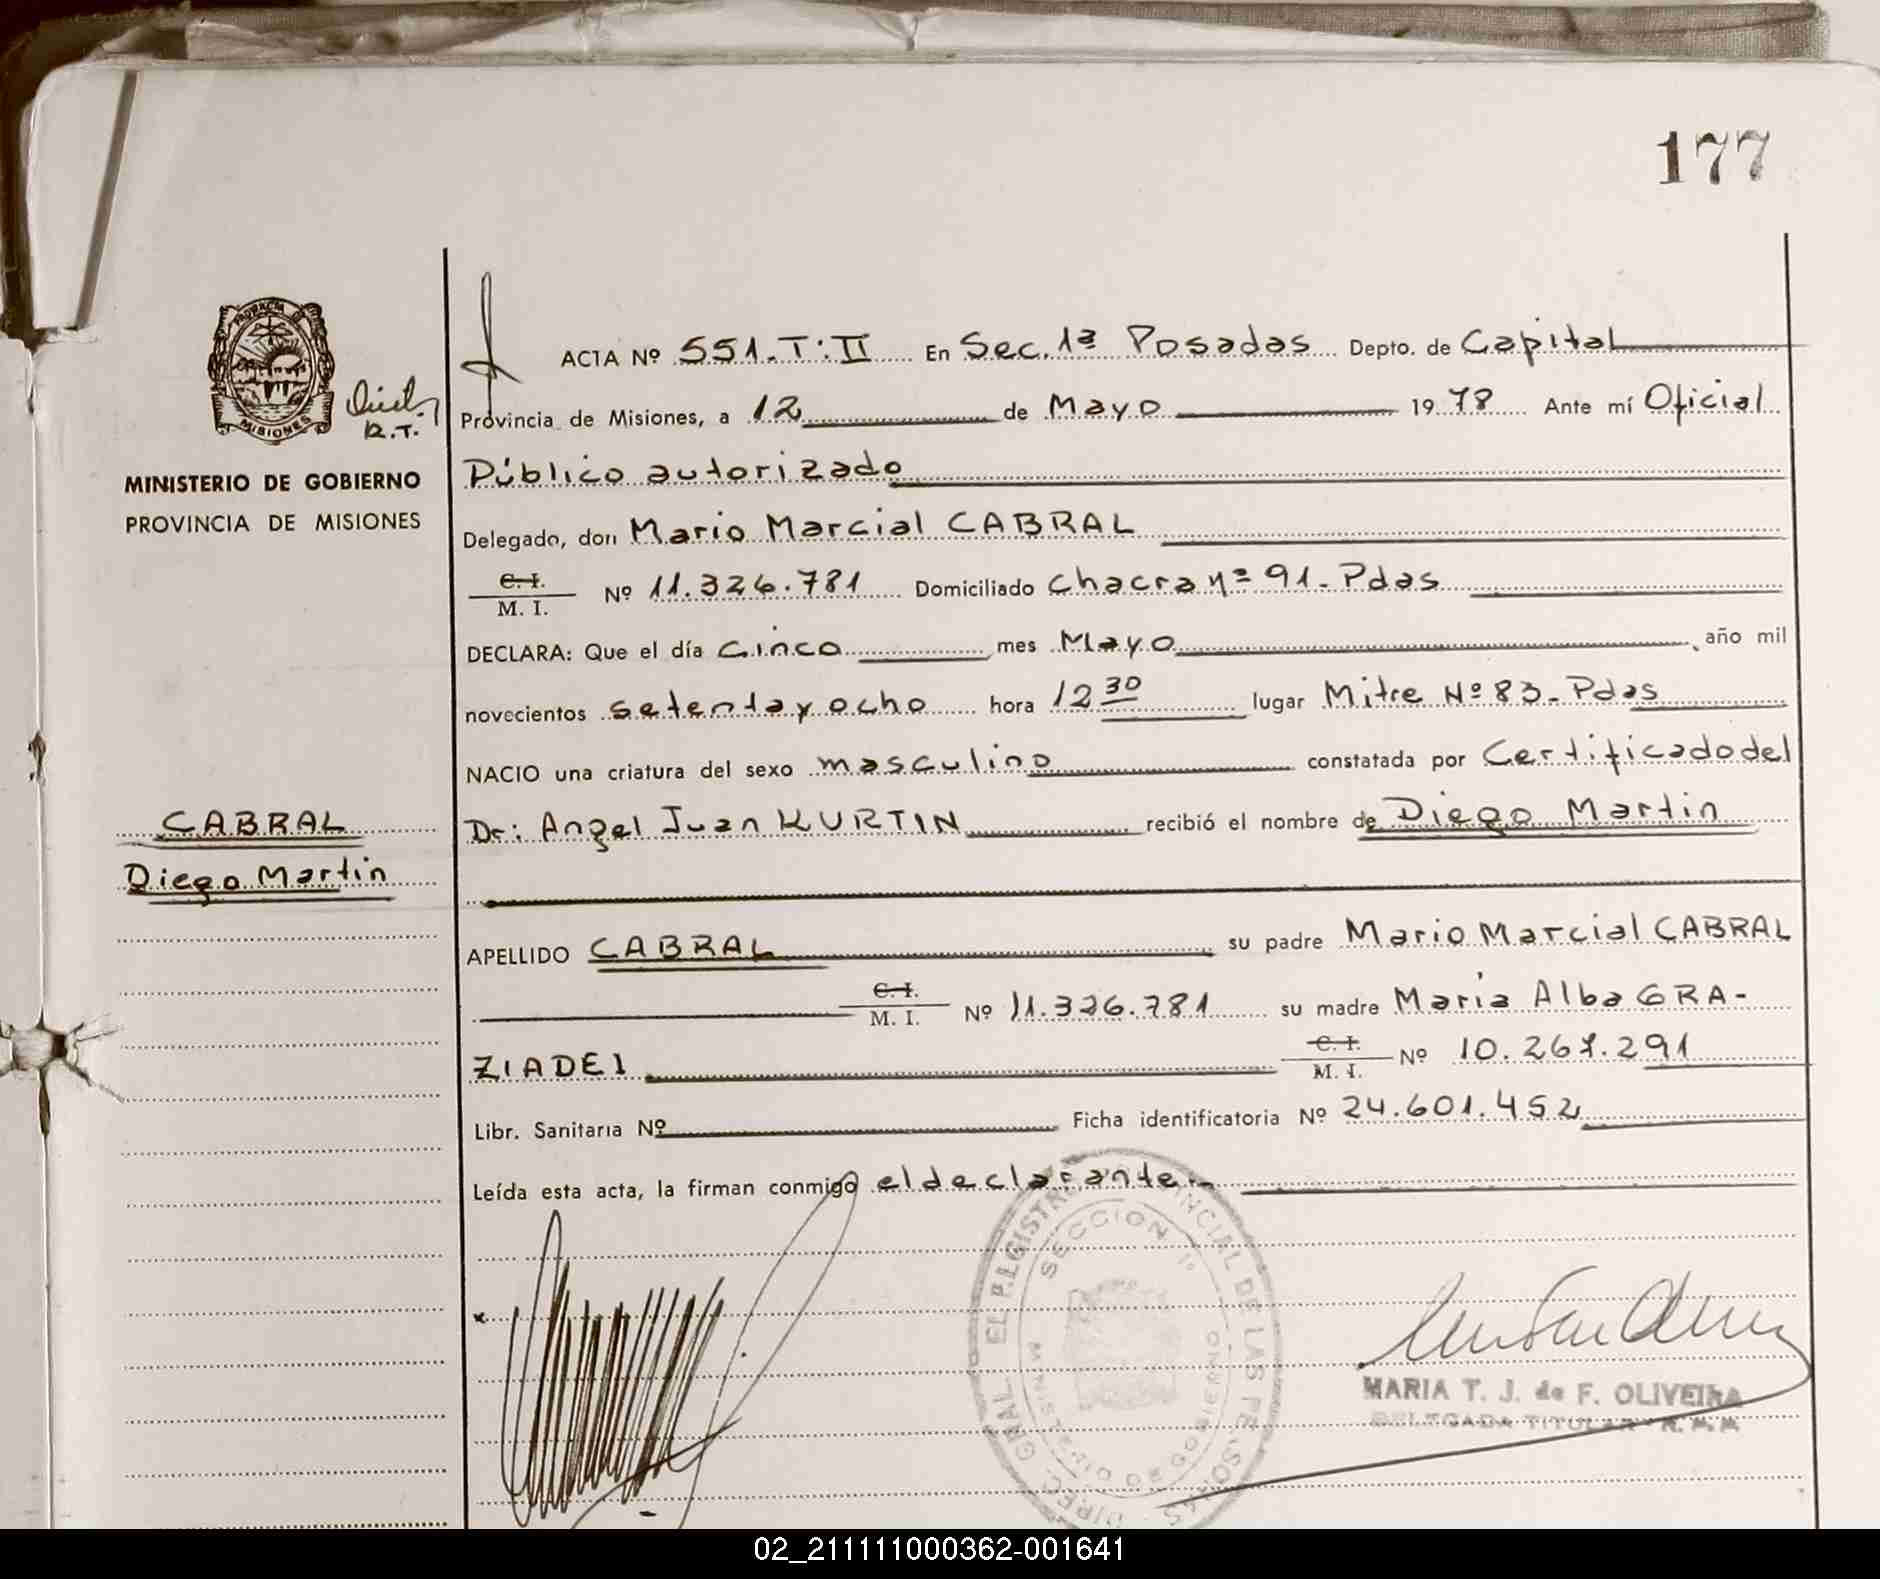 177
PROVINCIA DE
MISIONES
R.T.
MINISTERIO DE GOBIERNO
PROVINCIA DE MISIONES
CABRAL
Diego Martin
ACTA Nº 551.T:II En Sec. 1ª Posadas Depto. de Capital
Provincia de Misiones, a 12 de Mayo 1978 Ante mí Oficial
Público autorizado
Delegado, don Mario Marcial CABRAL
C. I.
M. I. Nº 11.326.781 Domiciliado Chacra nº 91 - Pdas
DECLARA: Que el día Cinco mes Mayo, año mil
novecientos setenta y ocho hora 12 30 lugar Mitre Nº 83 - Pdas
NACIO una criatura del sexo masculino constatada por Certificado del
Dr: Angel Juan KURTIN recibió el nombre de Diego Martin
APELLIDO CABRAL su padre Mario Marcial CABRAL
C. I.
M. I. Nº 11.326.781 su madre Maria Alba GRA-
ZIADEI C. I.
M. I. Nº 10.267.291
Libr. Sanitaria Nº Ficha identificatoria Nº 24.601.452
Leída esta acta, la firman conmigo el declarante.-
DIREC. GRAL. EL R. PROVINCIAL DE LAS PERSONAS
SECCION 1º
MINISTERIO DE GOBIERNO
MARIA T. J. de F. OLIVEIRA
DELEGADA TITULAR
02_211111000362-001641